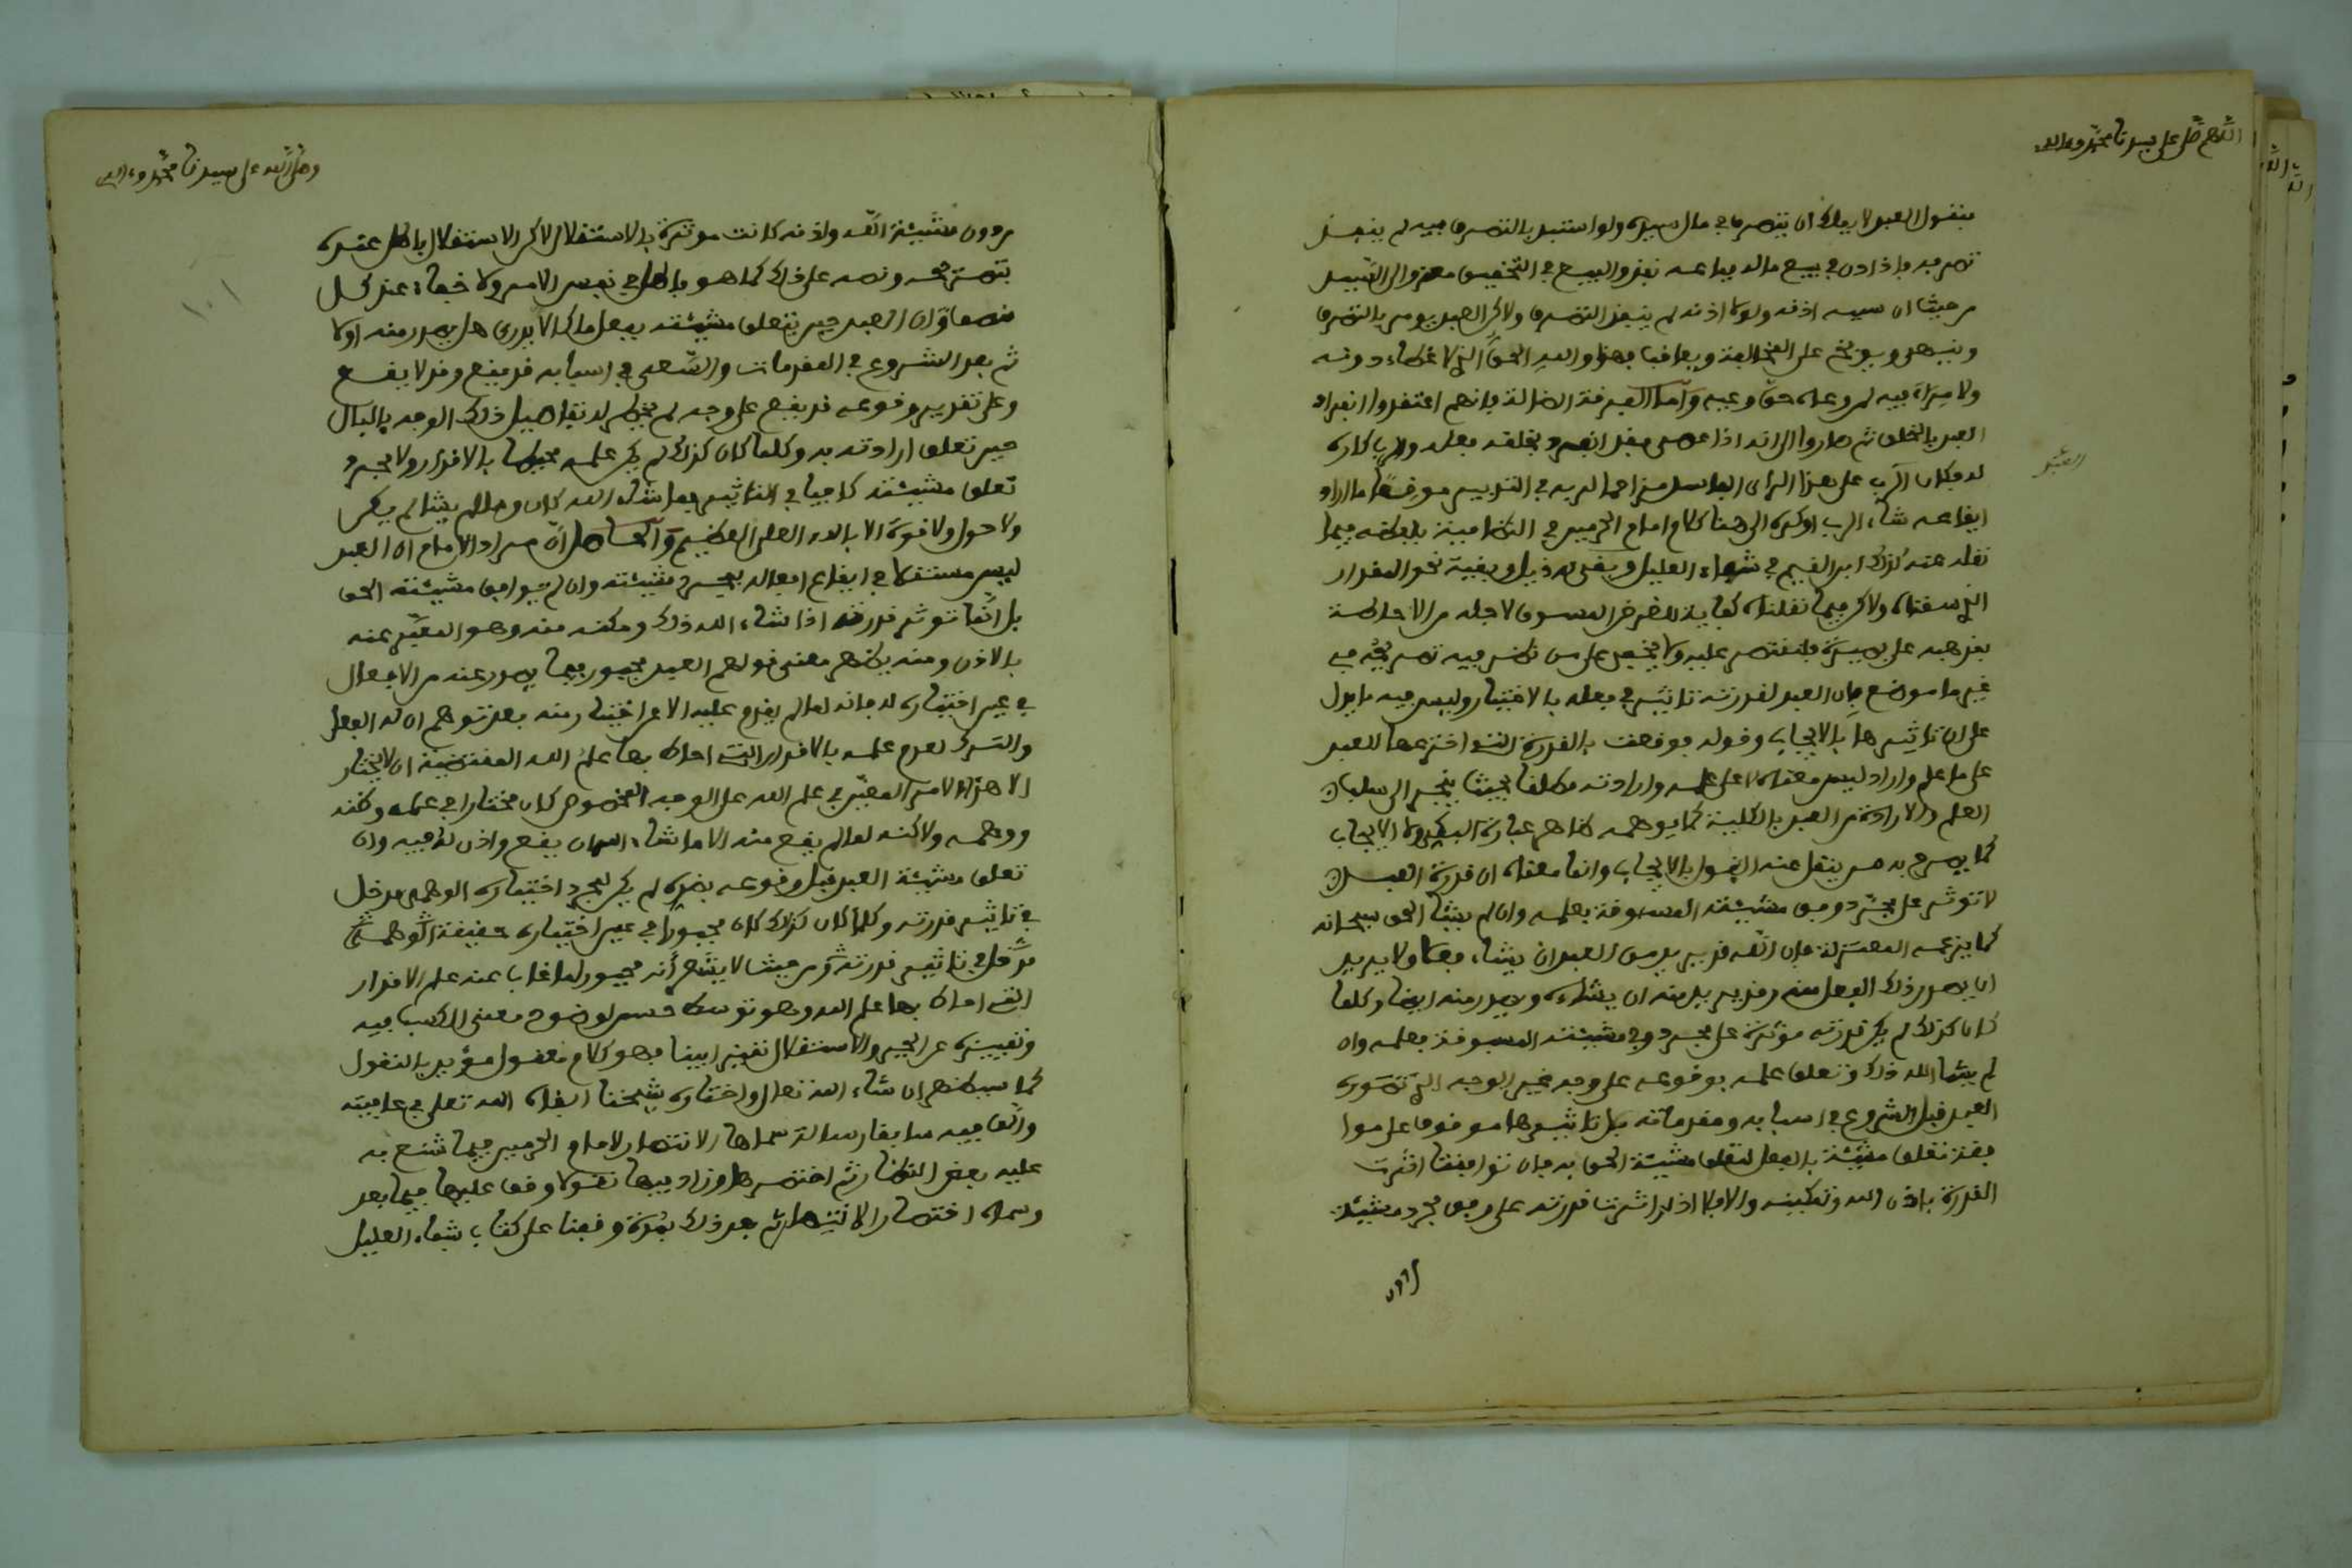 اللهم صل على سيدنا محمد وءاله
فنقول العبد لا يملك ان يتصرف في مال سيده ولو استبد بالتصرف فيه لم ينفذ
تصرفه فاذا اذن في بيع ماله فباعه نفذ والبيع في التحقيق معزو الى السيد
من حيث ان سببه اذنه ولولا اذنه لم ينفذ التصرف ولاكن العبد يومر بالتصرف
وينهى ويوبخ على المخالفة ويعاقب فهذا والله الحق الذي لا غطاء دونه
ولا مراء فيه لمن وعاه حق وعيه وأما الفرقة الضالة فانهم اعتقدوا انفراد
العبد بالخلق ثم صاروا الى انه اذا عصى فقد انفرد بخلق فعله والرب كاره
له فكان الرب على هذا الراي الباطل مزاحما لربه في التدبير موقعا ما اراد
ايقاعه شاء الرب او كره الى هنا كلام امام الحرمين في النظامية بلفظه فيما
نقله عنه كذلك ابن القيم في شفاء العليل وبقي له ذيل وبقية نحو المقدار
الذي سقناه ولاكن فيما نقلناه كفاية للغرض المسوق لاجله من الاحاطة
بمذهبه على بصيرة فلنقتصر عليه ولا يخفى على من نظر فيه تصريحه في
غير ما موضع بان العبد لقدرته تاثير في فعله بالاختيار وليس فيه ما يدل
على ان تاثيرها بالايجاب وقوله فوقعت بالقدرة التي اخترعها للعبد
على ما علم واراد ليس معناه الا على علمه وارادته مطلقا بحيث ينجر الى سلب
العلم والارادة من العبد بالكلية كما يوهمه ظاهر عبارة البعض ولا الايجاب
كما يصرح به من ينقل عنه القول بالايجاب وانما معناه ان قدرة العبد
لا توثر على مجرد وفق مشيئته المسبوقة بعلمه وان لم يشا الحق سبحانه
كما يزعمه المعتزلة فان الله قد يريد من العبد ان يشاء فعلا ولا يريد
ان يصدر ذلك الفعل منه وقد يريد منه ان يشاء ويصدر منه ايضا وكلما
كان كذلك لم يكن قدرته موثرة على مجرد وفق مشيئته المسبوقة بعلمه وان
لم يشا الله ذلك وتعلق علمه بوقوعه على وجه غير الوجه الذي تصوره
العبد قبل الشروع في اسبابه ومقدماته بل تاثيرها موقوف على موا
فقة تعلق مشيئته بالفعل لتعلق مشيئة الحق به فان توافقتا اثرت
القدرة باذن الله وتمكينه والا فلا اذ لو اثرت قدرته على وفق مجرد مشيئته
من دون
وصلى الله على سيدنا محمد وءاله
١٠١
من دون مشيئة الله واذنه كانت موثرة بالاستقلال لاكن الاستقلال باطل عنده
بتصريحه ونصه على ذلك كما هو باطل في نفس الامر ولا خفاء عند كل
منصف ان العبد حين يتعلق مشيئته بفعل ما لا يدري هل يصدر منه او لا
ثم بعد الشروع في المقدمات والسعي في اسبابه قد يقع وقد لا يقع
وعلى تقدير وقوعه قد يقع على وجه لم يخطر له تفاصيل ذلك الوجه بالبال
حين تعلق ارادته به وكلما كان كذلك لم يكن علمه محيطا بالاقدار ولا مجرد
تعلق مشيئته كافيا في التاثير فما شاء الله كان وما لم يشا لم يكن
ولا حول ولا قوة الا بالله العلي العظيم والحاصل ان مراد الامام ان العبد
ليس مستقلا في ايقاع افعاله بمجرد مشيئته وان لم يوافق مشيئة الحق
بل انما توثر قدرته اذا شاء الله ذلك ومكنه منه وهو المعبر عنه
بالاذن ومنه يظهر معنى قولهم العبد مجبور فيما يصدر عنه من الافعال
في عين اختياره له فانه لما لم يقدم عليه الا عن اختيار منه بعد توهم ان له الفعل
والترك لعدم علمه بالاقدار التي احاط بها علم الله المقتضية ان لا يختار
الا هذا الامر المعين في علم الله على الوجه المخصوص كان مختارا في علمه وظنه
ووهمه ولاكنه لما لم يقع منه الا ما شاء الله ان يقع واذن له فيه وان
تعلق مشيئة العبد قبل وقوعه بضده لم يكن لمجرد اختياره الوهمي مدخل
في تاثير قدرته وكلما كان كذلك كان مجبورا في عين اختياره حقيقة
مدخل في تاثير قدرته من حيث لا يشعر أنه مجبور لما غاب عنه علم الاقدار
التي احاط بها علم الله وهو توسط حسن لوضوح معنى الكسب فيه
وتمييزه عن الجبر والاستقلال تمييزا بينا فهو كلام معقول مؤيد بالنقول
كما سيظهر ان شاء الله تعالى واختاره شيخنا ابقاه الله تعالى في عافية
والف فيه سابقا رسالة سماها الانتصار لامام الحرمين فيما شنع به
عليه بعض النظار ثم اختصرها وزاد فيها نقولا وقف عليها فيما بعد
وسماه اختصار الانتصار ثم بعد ذلك بمدة وقفنا على كتاب شفاء العليل